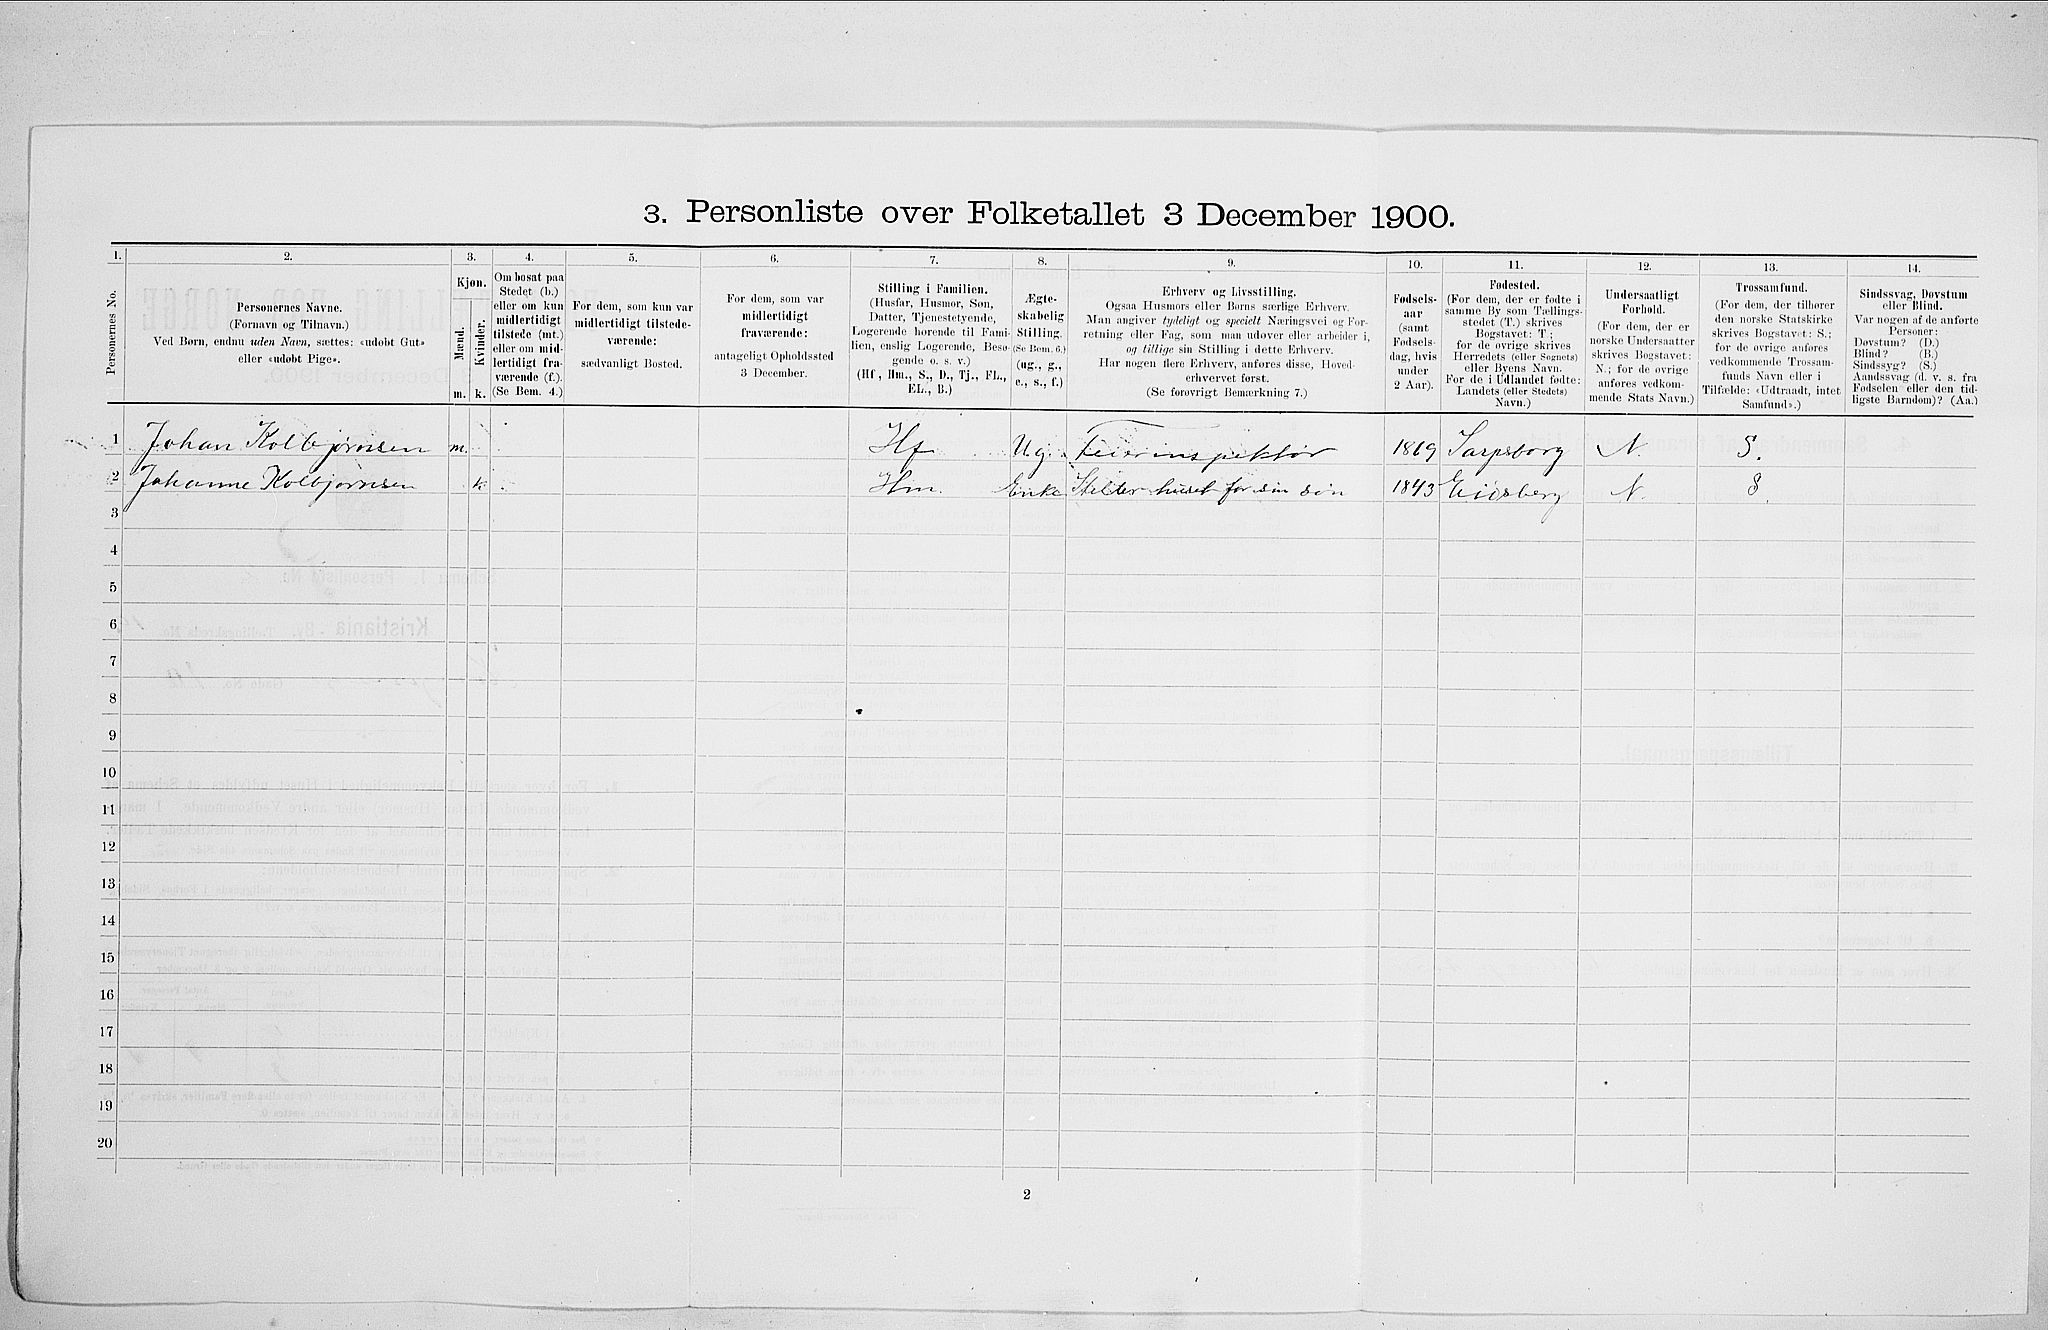 3. Personliste over Folketallet 3 December 1900.
1. 2. 3. 4. 5. 6. 7. 8. 9. 10. 11. 12. 13. 14.
Personernes No.
Personernes Navne.
(Fornavn og Tilnavn.)
Ved Børn, endnu uden Navn, sættes: «udøbt Gut»
eller «udøbt Pige».
Kjøn.
Mænd.
Kvinder.
m. k.
Om bosat paa
Stedet (b.)
eller om kun
midlertidigt
tilstede (mt.)
eller om mid-
lertidigt fra-
værende (f.).
(Se Bem. 4.)
For dem, som kun var
midlertidigt tilstede-
værende:
sædvanligt Bosted.
For dem, som var
midlertidigt
fraværende:
antageligt Opholdssted
3 December.
Stilling i Familien.
(Husfar, Husmor, Søn,
Datter, Tjenestetyende,
Logerende hørende til Fami-
lien, enslig Logerende, Besø-
gende o. s. v.)
(Hf, Hm., S., D., Tj., FL.,
EL., B.)
Ægte-
skabelig
Stilling.
(Se Bem. 6.)
(ug., g.,
e., s., f.)
Erhverv og Livsstilling.
Ogsaa Husmors eller Børns særlige Erhverv.
Man angiver tydeligt og specielt Næringsvei og For-
retning eller Fag, som man udøver eller arbeider i,
og tillige sin Stilling i dette Erhverv.
Har nogen flere Erhverv, anføres disse, Hoved-
erhvervet først.
(Se forøvrigt Bemærkning 7.)
Fødsels-
aar
(samt
Fødsels-
dag, hvis
under
2 Aar).
Fødested.
(For dem, der er fødte i
samme By som Tællings-
stedet (T.) skrives
Bogstavet: T.;
for de øvrige skrives
Herredets (eller Sognets)
eller Byens Navn.
For de i Udlandet fødte:
Landets (eller Stedets)
Navn.)
Undersaatligt
Forhold.
(For dem, der er
norske Undersaatter
skrives Bogstavet:
N.; for de øvrige
anføres vedkom-
mende Stats Navn.)
Trossamfund.
(For dem, der tilhører
den norske Statskirke
skrives Bogstavet: S.;
for de øvrige anføres
vedkommende Trossam-
funds Navn eller i
Tilfælde: «Udtraadt, intet
Samfund».)
Sindssvag, Døvstum
eller Blind.
Var nogen af de anførte
Personer:
Døvstum? (D.)
Blind? (B.)
Sindssyg? (S.)
Aandssvag (d. v. s. fra
Fødselen eller den tid-
ligste Barndom)? (Aa.)
1 Johan Kolbjørnsen m. Hf Ug. Feierinspektør 1869 Sarpsborg N. S.
2 Johanne Kolbjørnsen k Hm. Enke Steller huset for sin søn 1843 Eidsberg N. S.
3
4
5
6
7
8
9
10
11
12
13
14
15
16
17
18
19
20
2